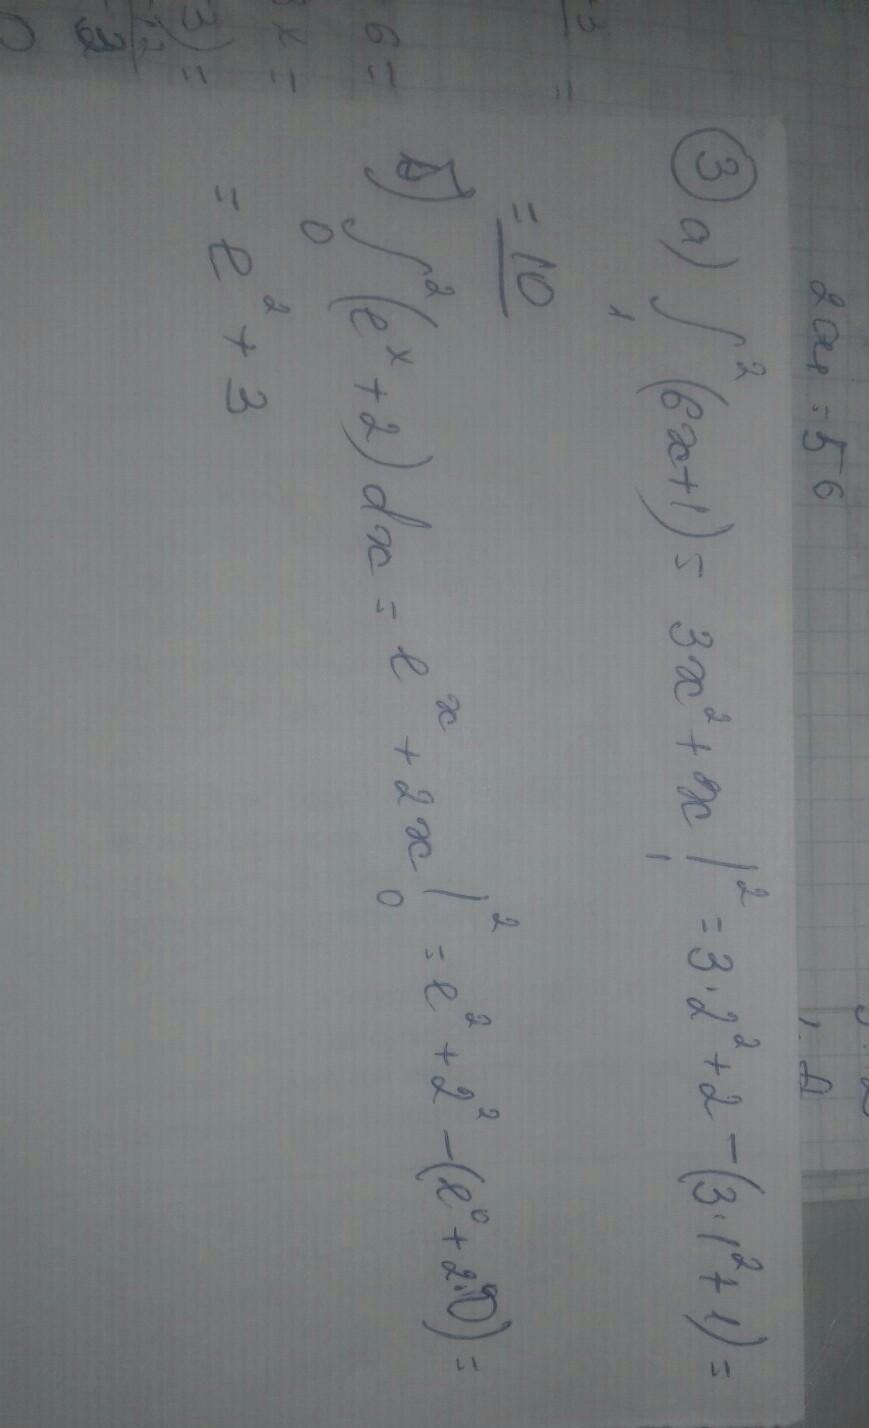 2x₁ = 56
③ а) ∫₁² (6x+1) = 3x² + x |₁² = 3·2² + 2 − (3·1² + 1) =
= 10
б) ∫₀² (eˣ + 2) dx = eˣ + 2x |₀² = e² + 2² − (e⁰ + 2·0) =
= e² + 3
6 =
x =
3) =